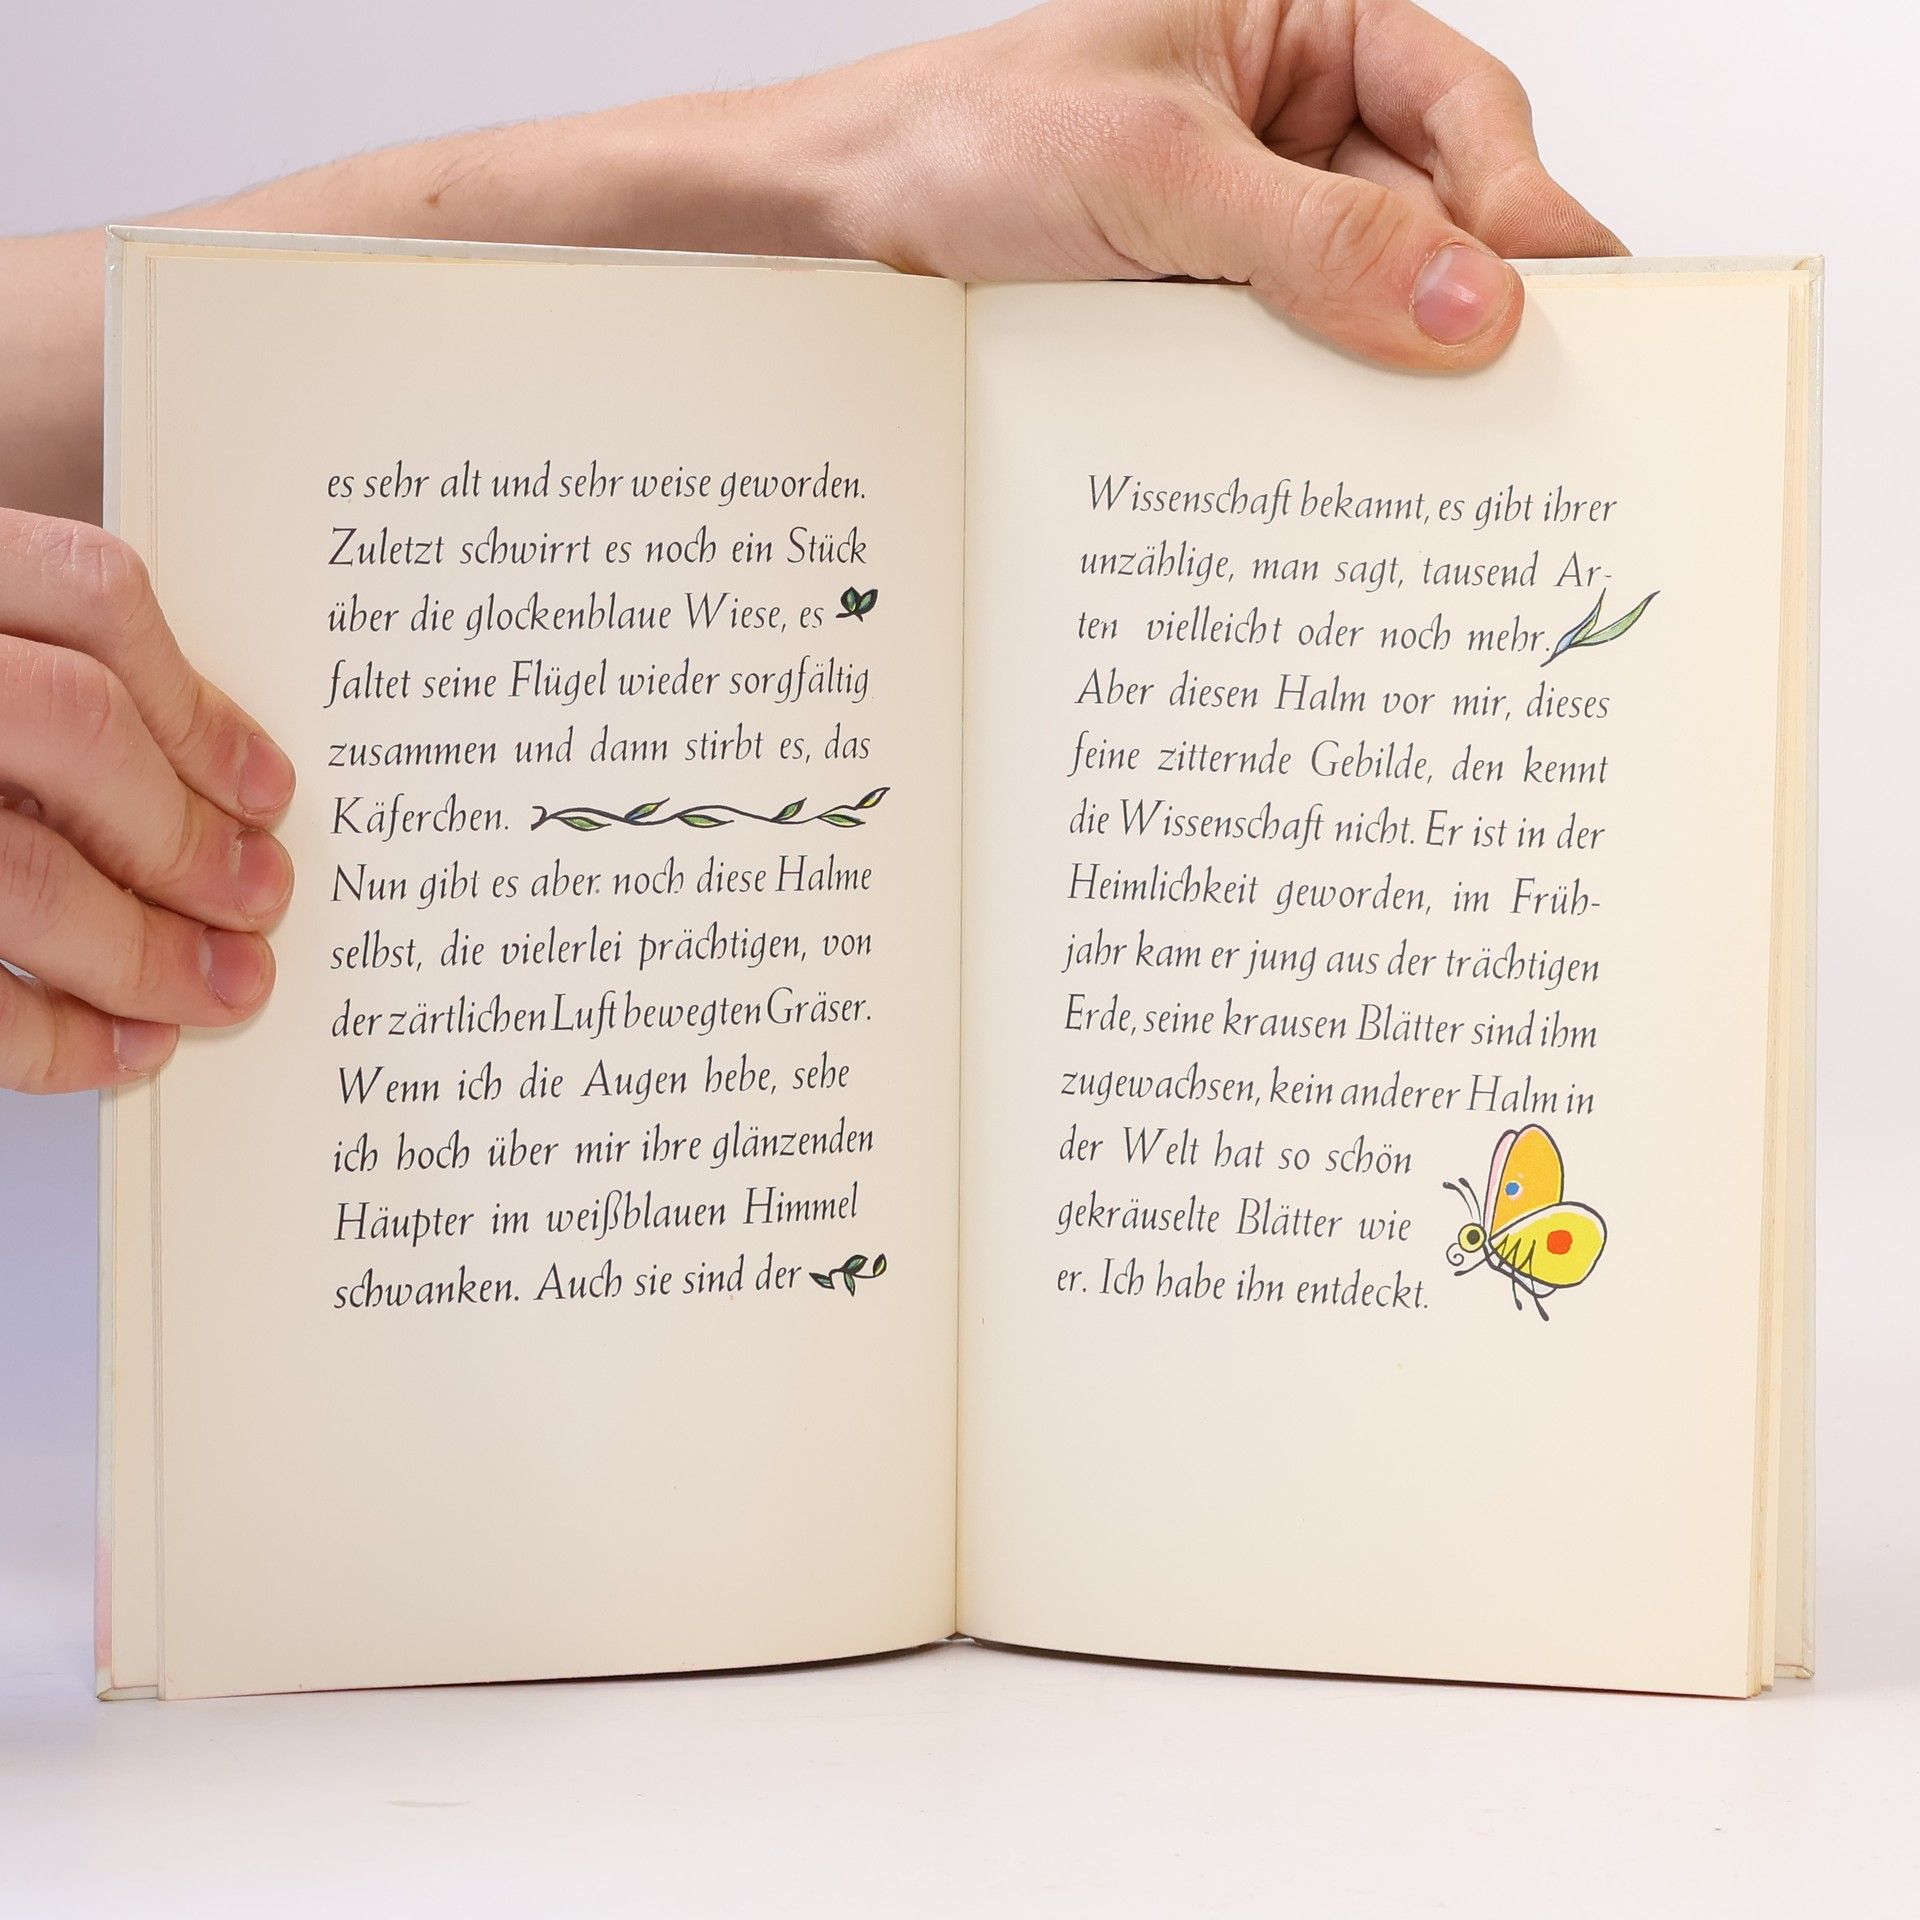 es sehr alt und sehr weise geworden.
Zuletzt schwirrt es noch ein Stück
über die glockenblaue Wiese, es
faltet seine Flügel wieder sorgfältig
zusammen und dann stirbt es, das
Käferchen.
Nun gibt es aber noch diese Halme
selbst, die vielerlei prächtigen, von
der zärtlichen Luft bewegten Gräser.
Wenn ich die Augen hebe, sehe
ich hoch über mir ihre glänzenden
Häupter im weißblauen Himmel
schwanken. Auch sie sind der
Wissenschaft bekannt, es gibt ihrer
unzählige, man sagt, tausend Ar-
ten vielleicht oder noch mehr.
Aber diesen Halm vor mir, dieses
feine zitternde Gebilde, den kennt
die Wissenschaft nicht. Er ist in der
Heimlichkeit geworden, im Früh-
jahr kam er jung aus der trächtigen
Erde, seine krausen Blätter sind ihm
zugewachsen, kein anderer Halm in
der Welt hat so schön
gekräuselte Blätter wie
er. Ich habe ihn entdeckt.